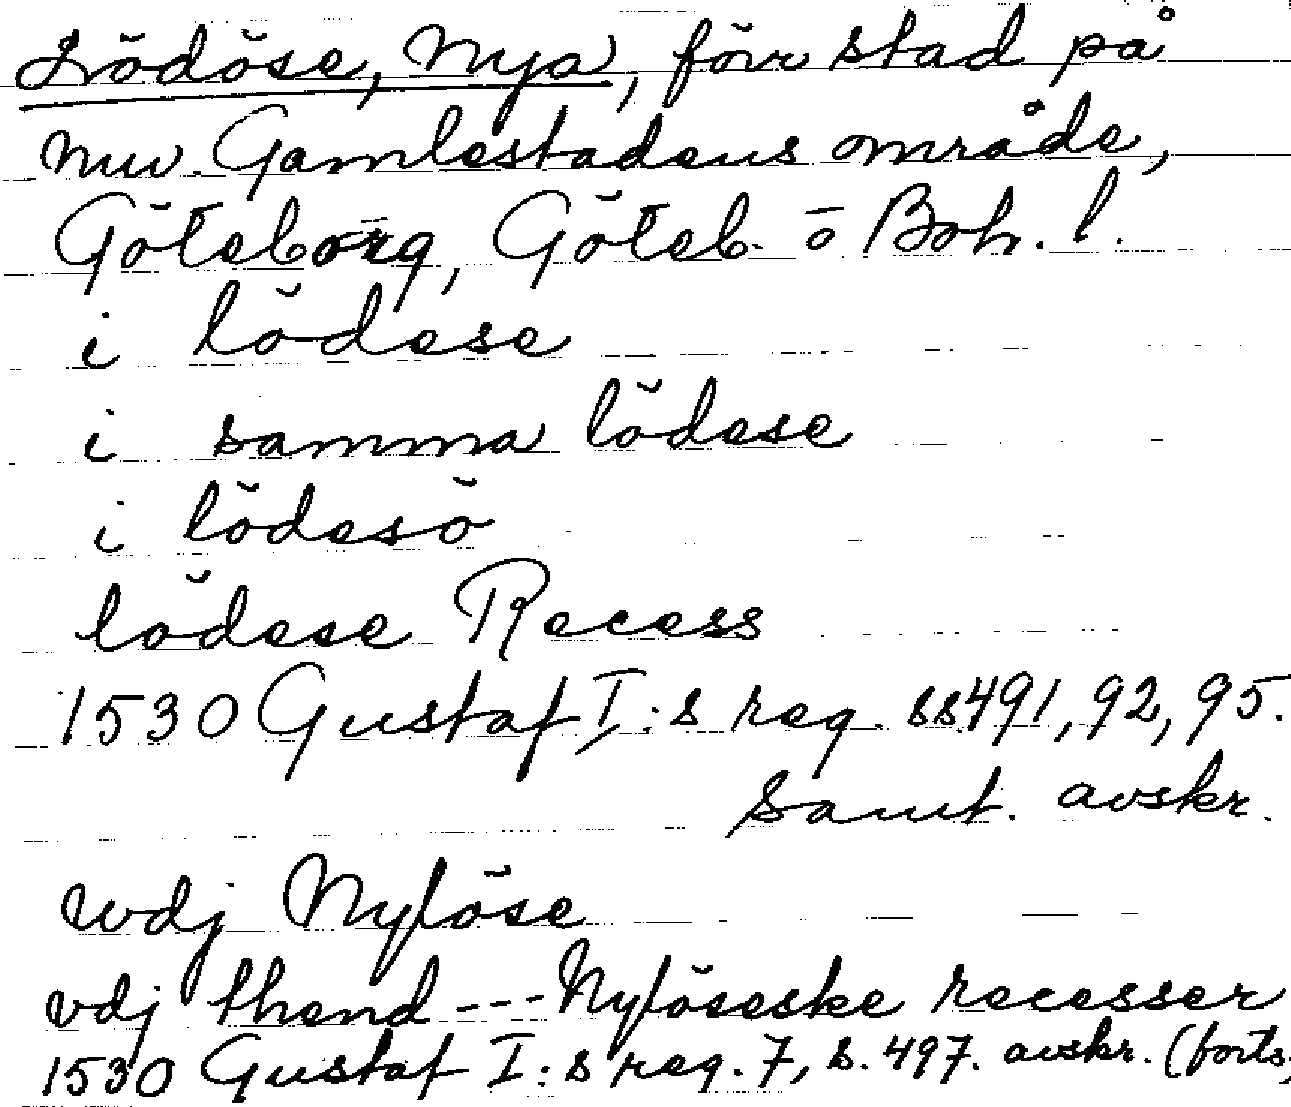 Lödöse, Nya, förr stad på
nuv. Gamlestadens område,
Göteborg, Göteb. o Boh. l.
i lödese
i samma lödese
i lödesö
lödese Recess
1530 Gustaf I:s reg. ss 491, 92, 95.
Samt. avskr.
wdj Nylöse
vdj thend --- Nylöseske recesser
1530 Gustaf I:s reg. 7, s. 497. avskr. (forts.